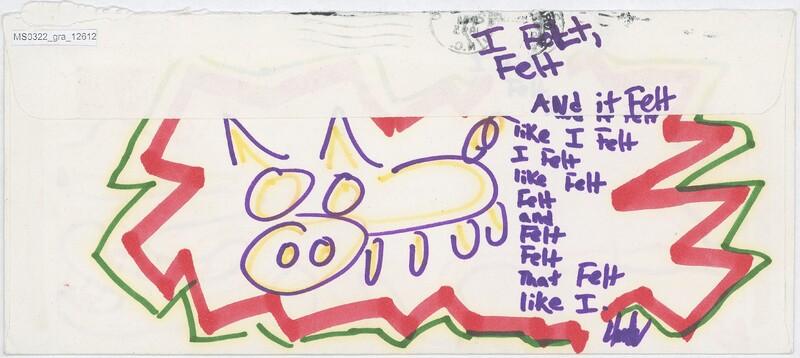 MS0322_gra_12612
I Felt,
Felt
AND it Felt
like I Felt
I Felt
like Felt
Felt
and
Felt
Felt
That Felt
like I.